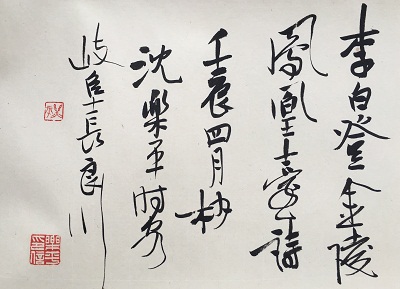 李白登金陵
鳳凰臺詩
壬辰四月杪
沈樂平时客
岐阜長良川